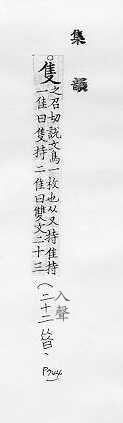 集韻
○隻
之石切說文鳥一枚也从又持隹持
一隹曰隻持二隹曰雙文二十三
入聲
(二十二昔.
P744)